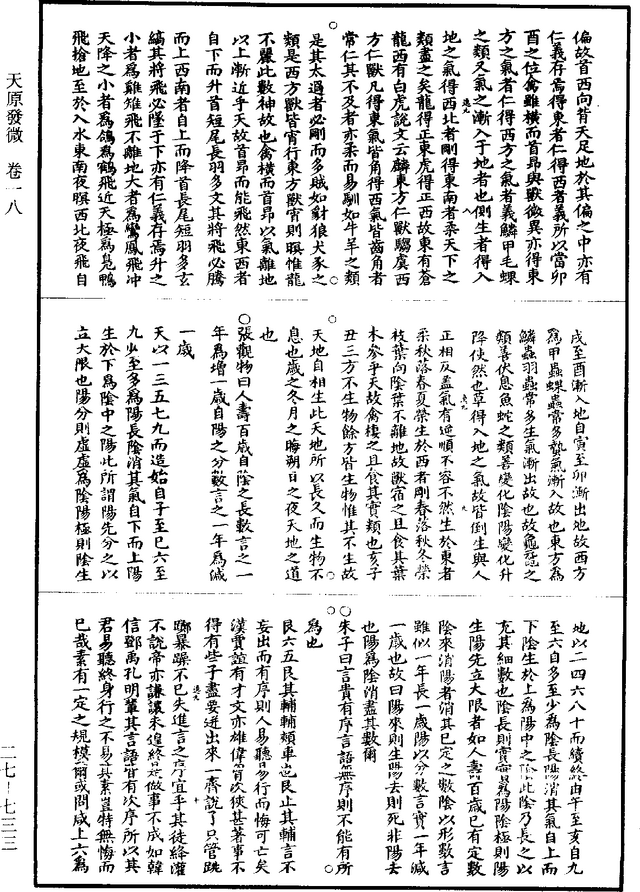 偏故首西向背天足地於其偏之中亦有
仁義存焉得東者仁得西者義所以當卯
酉之位禽雖橫而首昂與獸微異亦得東
方之氣者仁得西方之氣者義鱗甲毛蜾
之類又氣之漸入于地者也倒生者得入
地之氣得西北者剛得東南者柔天下之
類盡之矣龍得正東虎得正西故東有蒼
龍西有白虎說文云麟東方仁獸騶虞西
方仁獸凡得東氣皆角得西氣皆齒角者
常仁其不及者亦柔而易馴如牛羊之類
是其太過者必剛而多賊如豺狼犬豕之
類是西方獸皆宵行東方獸宵則瞑惟龍
不麗此數神故也禽橫而首昂以氣離地
以上漸近乎天故首昂而能飛然東西者
自下而升首短尾長羽多文其將飛必騰
而上西南者自上而降首長尾短羽多玄
縞其將飛必墜于下亦有仁義存焉升之
小者為雞雉飛不離地大者為鸞鳳飛冲
天降之小者為鴿為鶴飛近天極為鳧鴨
飛搶地至於入水東南夜瞑西北夜飛自
戌至酉漸入地自寅至卯漸出地故西方
為甲蟲蜾蟲常多蟄氣漸入故也東方為
鱗蟲羽蟲常多生氣漸出故也故龜黿之
類喜伏息魚蛇之類喜變化陰陽變化升
降使然也草得入地之氣故皆倒生與人
正相反蓋氣有逆順不容不然生於東者
柔秋落春夏榮生於西者剛春落秋冬榮
枝葉向陰葉不離地故獸宿之且食其葉
木參乎天故禽棲之且食其實類也亥子
丑三方不生物餘方皆生物惟其不生故
天地自相生此天地所以長久而生物不
息也歲之冬月之晦朔日之夜天地之道
也
○張觀物曰人壽百歲自陰之長數言之一
年為增一歲自陽之分數言之一年為減
一歲
天以一三五七九而造始自子至巳六至
九少至多為陽長陰消其氣自下而上陽
生於下為陰中之陽此所謂陽先分之以
立大限也陽分則虛虛為陰陽極則陰生
地以二四六八十而續終由午至亥自九
至六自多至少為陰長陽消其氣自上而
下陰生於上為陽中之陰此陰乃長之以
充其細數也陰長則實實為陽陰極則陽
生陽先立大限者如人壽百歲已有定數
陰來消陽者消其已定之數陰以形數言
雖似一年長一歲陽以分數言實一年減
一歲也故曰陽來則生陽去則死非陽去
也陽為陰消盡其數爾
○朱子曰言貴有序言語無序則不能有所
為也
艮六五艮其輔輔頰車也艮止其輔言不
妄出而有序則人易聽易行而悔可亡矣
漢賈誼有才文亦雄偉甚著事不
得有些子盡要迸出來一齊說了只管跳
躑暴躁不已失進言之序宜乎其徒絳灌
不說帝亦謙讓未遑終定做事不成如韓
信鄧禹孔明輩其言語皆有次序所以其
君易聽終身行之不易其素豈特無悔而
已哉素有一定之規模爾或問咸上六為
天原發微 卷一八
二七－七三三